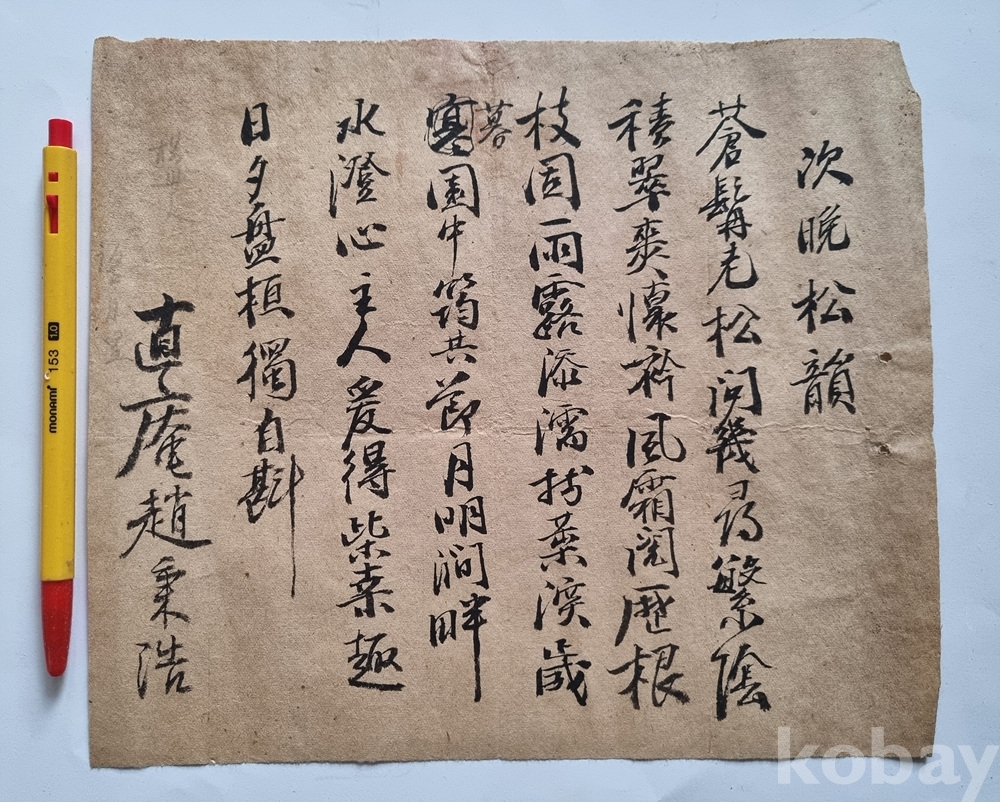 次晩松韻
蒼髥老松問幾尋繁陰
積翠爽懷衿風霜閱歷根
枝固雨露添濡葉深歲
暮
寒園中筠共節月明澗畔
水澄心主人爰得柴桑趣
日夕盤桓獨自斟
直庵趙秉浩
monami 153 1.0
kobay